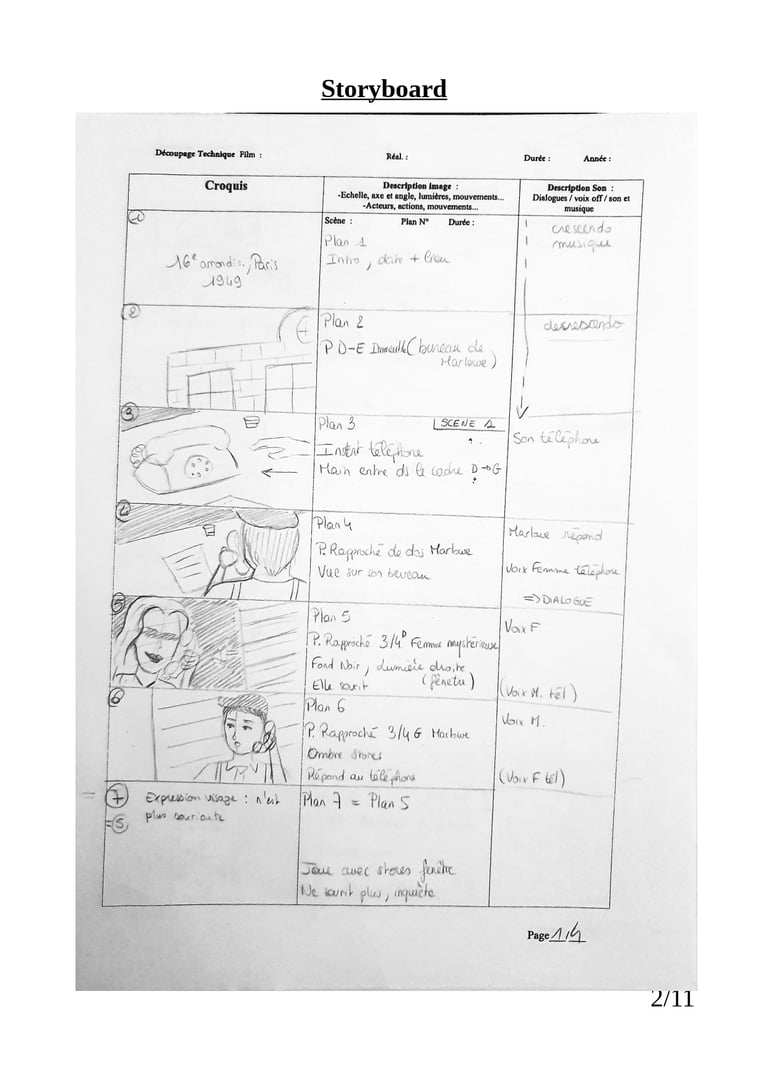 Storyboard
Découpage Technique Film :
Réal. :
Durée :
Année :
Croquis
Description image :
-Echelle, axe et angle, lumières, mouvements...
-Acteurs, actions, mouvements...
Description Son :
Dialogues / voix off / son et
musique
Scène :
Plan N°
Durée :
1
16e arrondis., Paris
1949
Plan 1
Intro, date + lieu
crescendo
musique
2
Plan 2
P D-E (bureau de
Marlowe)
decrescendo
3
Plan 3
SCENE 1
Insert téléphone
Main entre ds le cadre D→G
Son téléphone
4
Plan 4
P. Rapproché de dos Marlowe
Vue sur son bureau
Marlowe répond
Voix Femme téléphone
⇒ DIALOGUE
5
Plan 5
P. Rapproché 3/4 D Femme mystérieuse
Fond Noir, Lumière droite
(fenêtre)
Elle sourit
Voix F
(Voix M. tél)
6
Plan 6
P. Rapproché 3/4 G Marlowe
Ombre stores
Répond au téléphone
Voix M.
(Voix F tél)
7
=5
Expression visage : n'est
plus souriante
Plan 7 = Plan 5
Joue avec stores fenêtre
Ne sourit plus, inquiète
Page 1/4
2/11